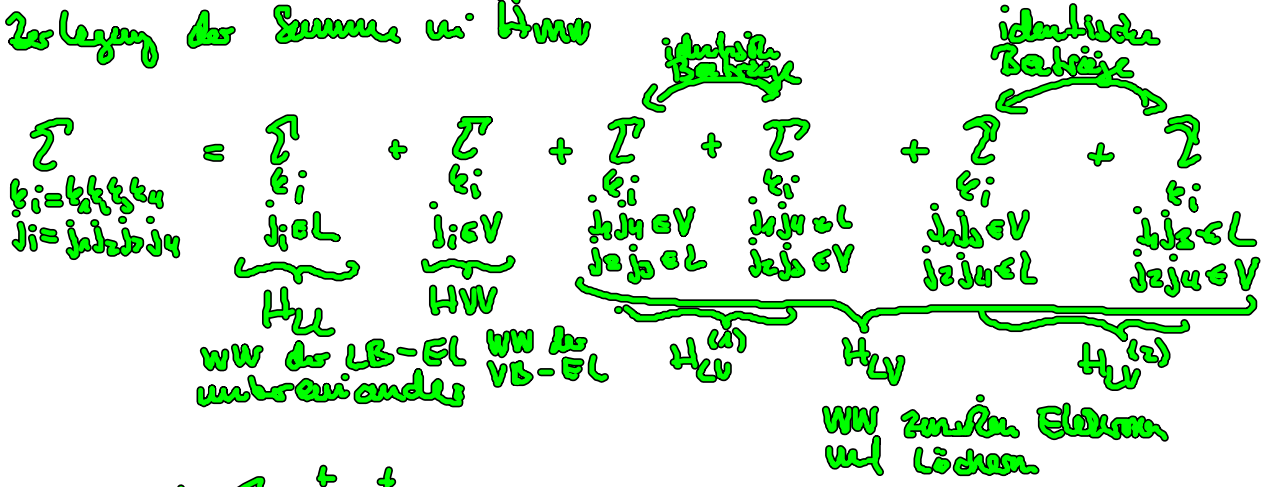 Zerlegung der Summe in H_WW
identische Beiträge
identische Beiträge
∑ = ∑ + ∑ + ∑ + ∑ + ∑ + ∑
k_i = k_1 k_2 k_3 k_4 k_i k_i k_i k_i k_i k_i
j_i = j_1 j_2 j_3 j_4 j_i ∈ L j_i ∈ V j_1 j_4 ∈ V j_1 j_4 ∈ L j_1 j_3 ∈ V j_1 j_3 ∈ L
j_2 j_3 ∈ L j_2 j_3 ∈ V j_2 j_4 ∈ L j_2 j_4 ∈ V
H_LL H_VV H_LV^(1) H_LV H_LV^(2)
WW der LB-El untereinander
WW der VB-EL
WW zwischen Elektronen
und Löchern